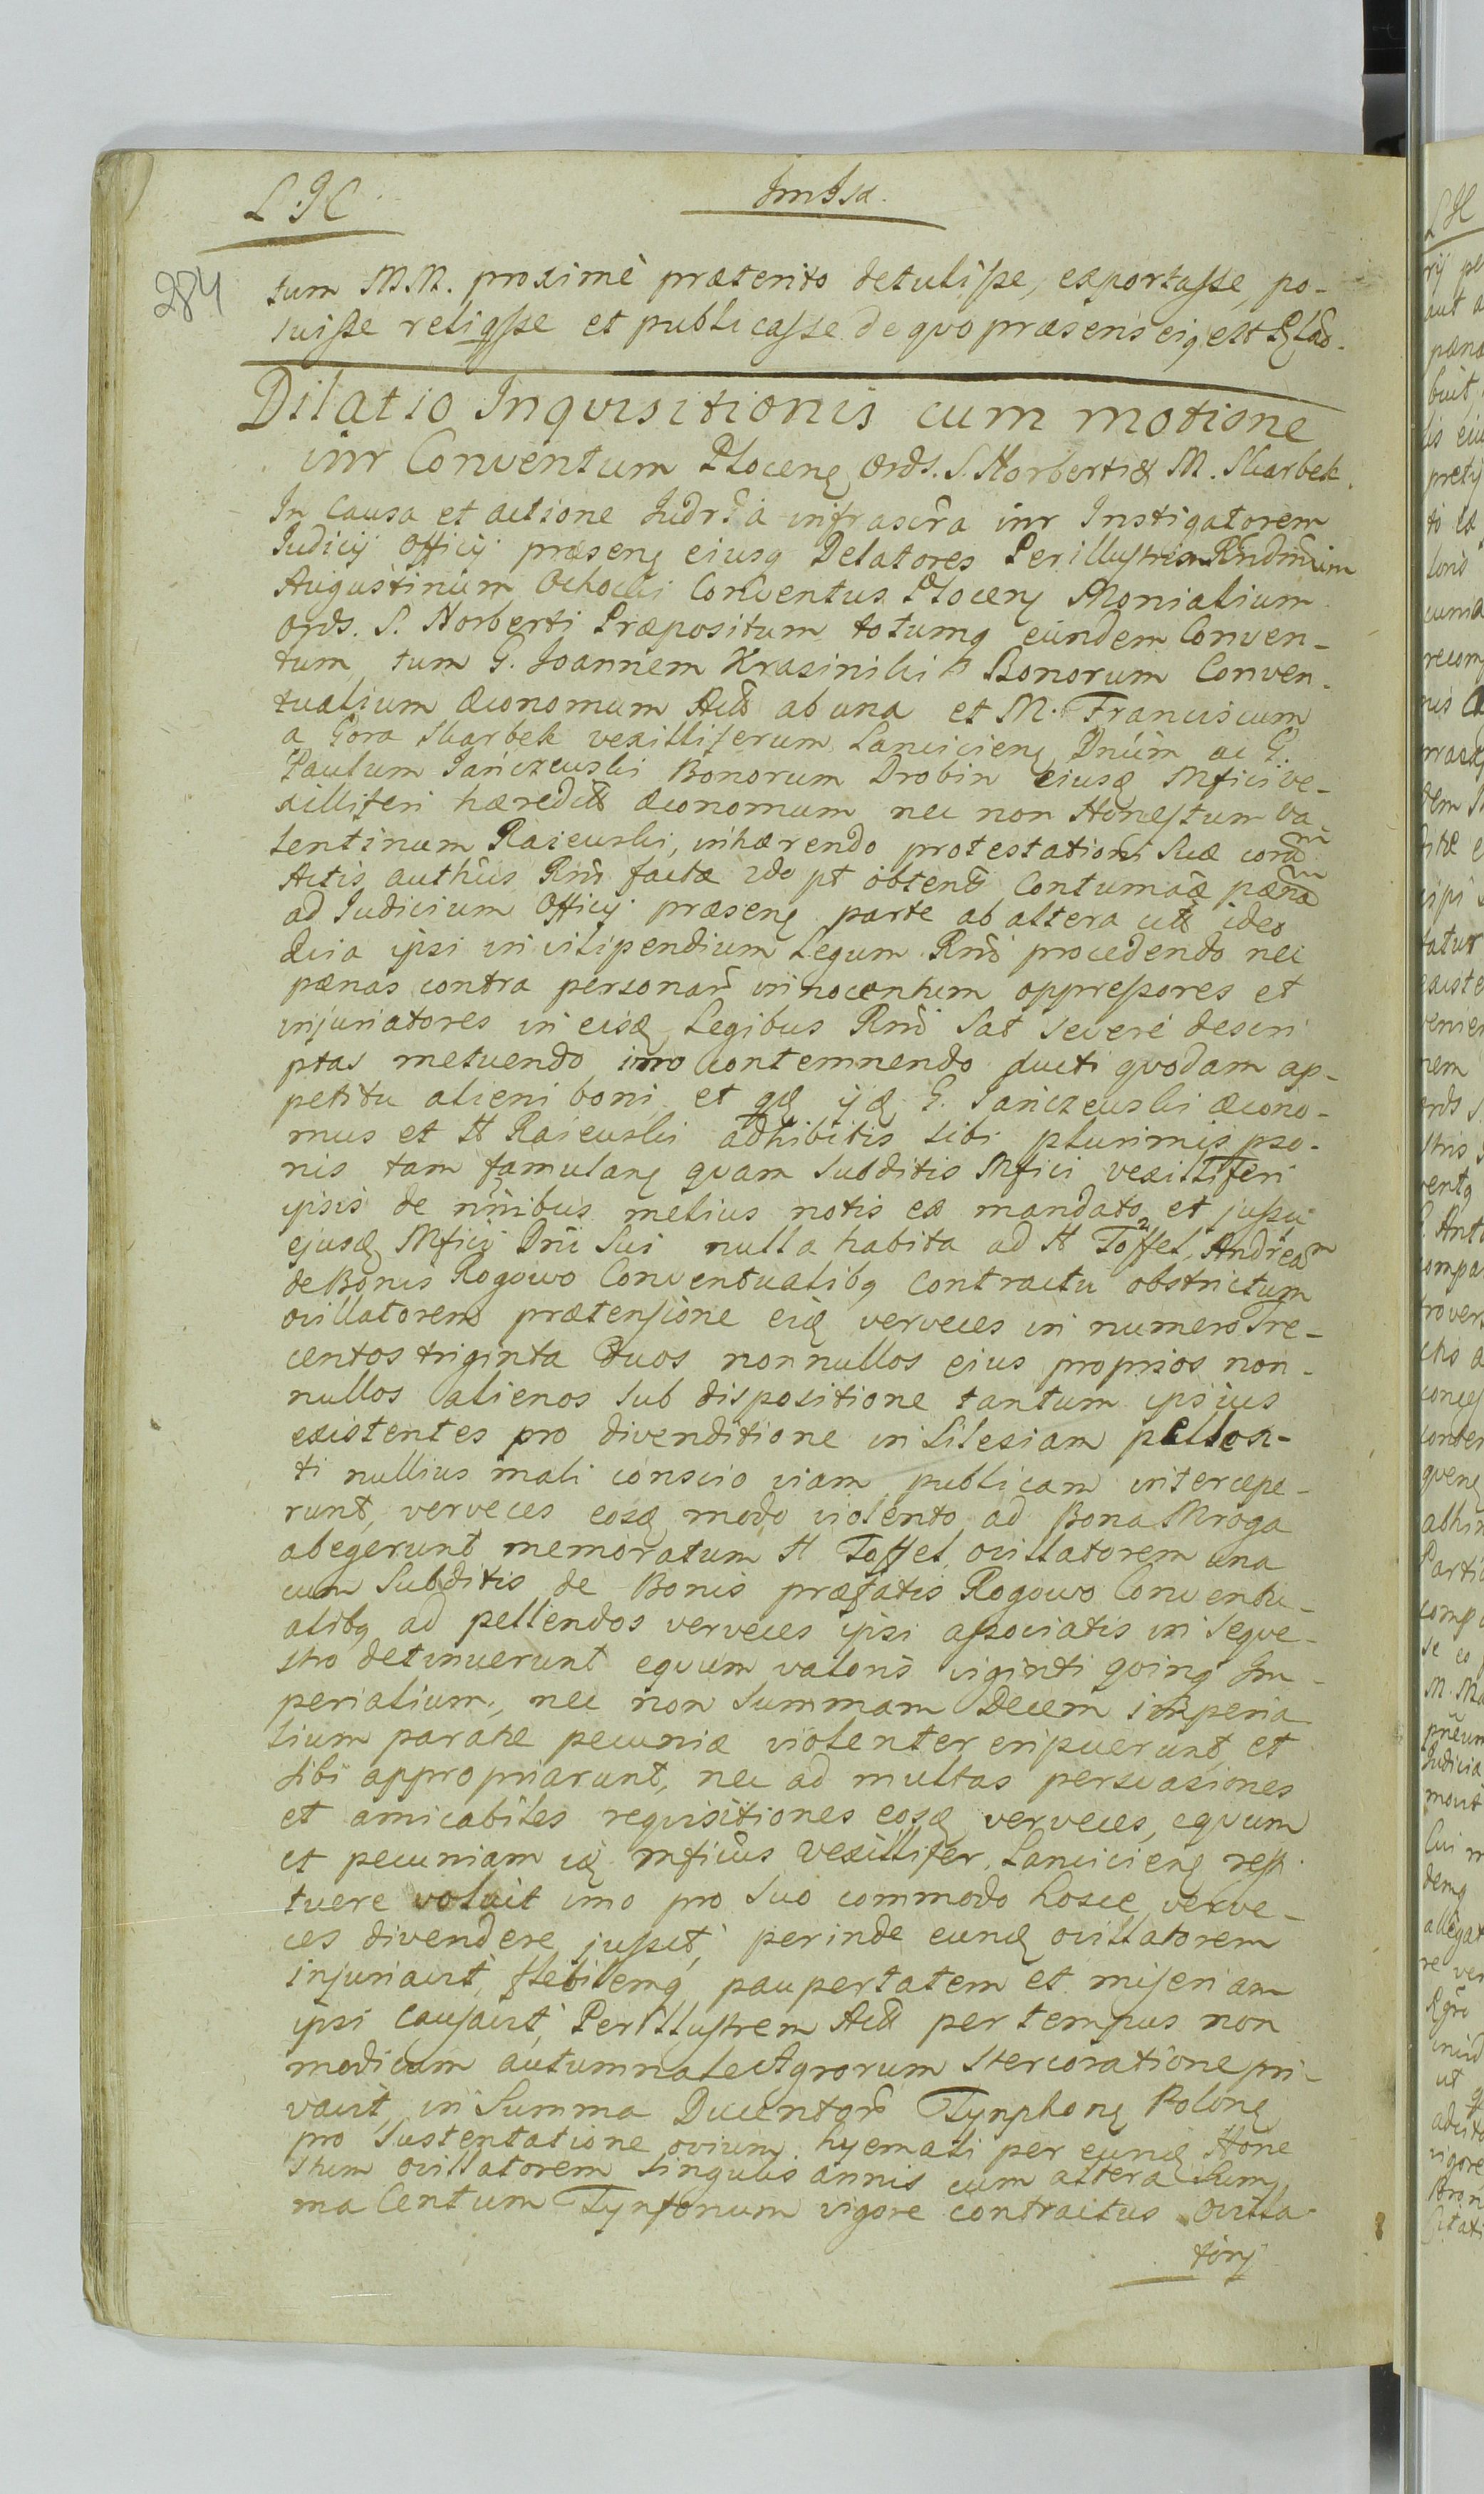 284
tum M.M. proximè præterito detulisse, exportasse, po-
suisse reliqsse et publicasse de quo præsens eiq est
Dilatio Inquisitionis cum motione
inr Conventum Plocenq Ords. S. Norberti & M. Skarbek.
In Causa et actione infrascra inr Instigatorem
Iudicij Officij præsenq eiusq Delatores Perillustrem Rndmum
Augustinum Ochocki Conventus Plocenq Monialium
Ords. S. Norberti Præpositum totumq eundem Conven-
tum, tum G. Joannem Krasinski Bonorum Conven-
tualium æconomum ab una et M. Franciscum
a Gora Skarbek vexilliferum Lancicienq Dnum ac G.
Paulum Jańczewski Bonorum Drobin eiusq Mfici ve-
xilliferi hæredit æconomum nec non Honestum Va-
lentinum Raiewski, inhærendo protestationi Suæ coram
Actis authcis Rni factæ pt obtent Contumaciæ pæna
ad Iudicium Officij præsenq parte ab altera ideo
quia ipsi in vilipendium Legum Rni procedendo nec
pænas contra personar innocentum oppressores et
injuriatores in eisq Legibus Rni Sat severé descri
ptas metuendo imo contemnendo ducti quodam ap-
petitu alieni boni et G. Jańczewski æcono-
mus et H Raiewski adhibitis sibi plurimis pso-
nis tam famulanq quam Subditis Mfici vexilliferi
ipsis de nnibus melius notis ex mandato et jussu
ejusq Mfici Dni Sui nulla habita ad H Toffel, Andream
de Bonis Rogowo Conventualibq contractu obstrictum
ovillatorem prætensione eiq verveces in numero Tre-
centos triginta Duos nonnullos ejus proprios non-
nullos alienos sub dispositione tantum ipsius
existentes pro divenditione in Silesiam
ti nullius mali conscio viam publicam intercepe-
runt, verveces eosq modo violento ad Bona Mroga
abegerunt memoratum H Toffel, ovillatorem una
cum Subditis de Bonis præfatis Rogowo Conventu-
alibq ad pellendos verveces ipsi associatis in Seque-
stro detinuerunt equum valoris viginti quinq Im-
perialium, nec non Summam Decem imperia
lium paratæ pecuniæ violenter eripuerunt et
sibi appropriarunt, nec ad multas persuasiones
et amicabiles requisitiones eosq verveces, equum
et pecuniam iq mficus Vexillifer Lancicienq resti
tuere voluit imo pro suo commodo hosce verve-
ces divendere jussit, perinde eunq ovillatorem
injuriavit, flebilemq paupertatem et miseriam
ipsi causavit, Perillustrem per tempus non
modicum autumnale Agrorum stercoratione pri-
vavit, in Summa Ducentor Tynphonq Polonq
pro Sustentatione ovium hyemali per eunq Hone
stum ovillatorem singulis annis cum altera Sum
ma Centum Tynfonum vigore contractus ovilla-
torij